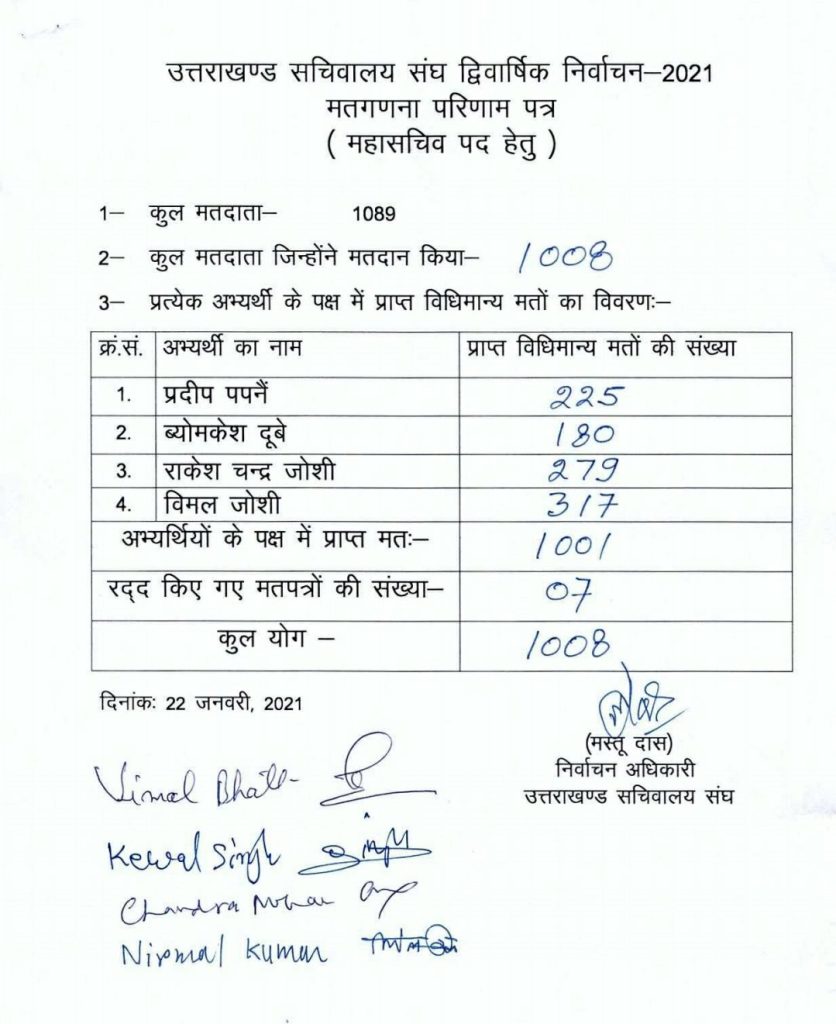 उत्तराखण्ड सचिवालय संघ द्विवार्षिक निर्वाचन–2021
मतगणना परिणाम पत्र
( महासचिव पद हेतु )
1– कुल मतदाता– 1089
2– कुल मतदाता जिन्होंने मतदान किया– 1008
3– प्रत्येक अभ्यर्थी के पक्ष में प्राप्त विधिमान्य मतों का विवरणः–
क्रं.सं. अभ्यर्थी का नाम प्राप्त विधिमान्य मतों की संख्या
1. प्रदीप पपनैं 225
2. ब्योमकेश दूबे 180
3. राकेश चन्द्र जोशी 279
4. विमल जोशी 317
अभ्यर्थियों के पक्ष में प्राप्त मतः– 1001
रद्द किए गए मतपत्रों की संख्या– 07
कुल योग – 1008
दिनांकः 22 जनवरी, 2021
(मस्तू दास)
निर्वाचन अधिकारी
उत्तराखण्ड सचिवालय संघ
Vimal Bhatt
Kewal Singh
Chandra Mohan
Nirmal Kumar